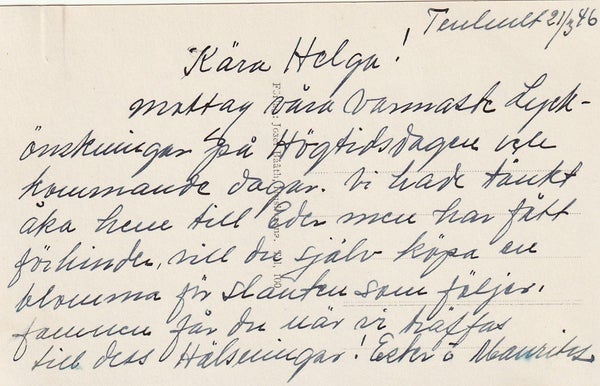 Tenhult 21/3 46
Kära Helga!
mottag våra varmaste Lyck-
önskningar på Högtidsdagen
kommande dagar. Vi hade tänkt
åka till Eder men har fått
förhinder, vill du själv köpa en
blomma för slanten som följer.
famnen får du när vi träffas
till dess Hälsningar! Ester o Maurits.